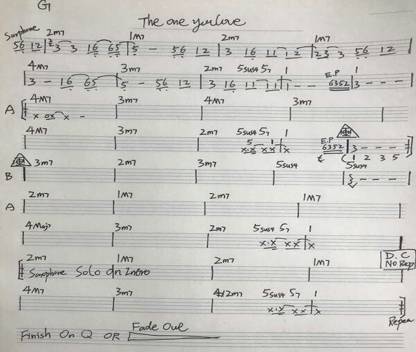 G
The one you love
Saxophone 2m7 1M7 2m7 1M7
56 12 3 3 16 65 5 - 56 12 3 16 11 12 23 3 56 12
4M7 3m7 2m7 5sus4 57 1 E.P
3 - 16 65 5 - 56 12 3 16 11 11 1 6352 3 - - -
A 4M7 3m7 4M7 3m7
4M7 3m7 2m7 5sus4 57 1 E.P
5 1 6352 3 - - -
1 2 3 5
B 3m7 2m7 3m7 5sus4 5sus4
A 2m7 1M7 2m7 1M7
4Maj7 3m7 2m7 5sus4 57 1
2m7 1M7 2m7 1M7 D.C
Saxophone Solo On Intro No Rep
4M7 3m7 4/2m7 5sus4 57 1
x·x xx x
Repea
Finish On Q OR Fade Out